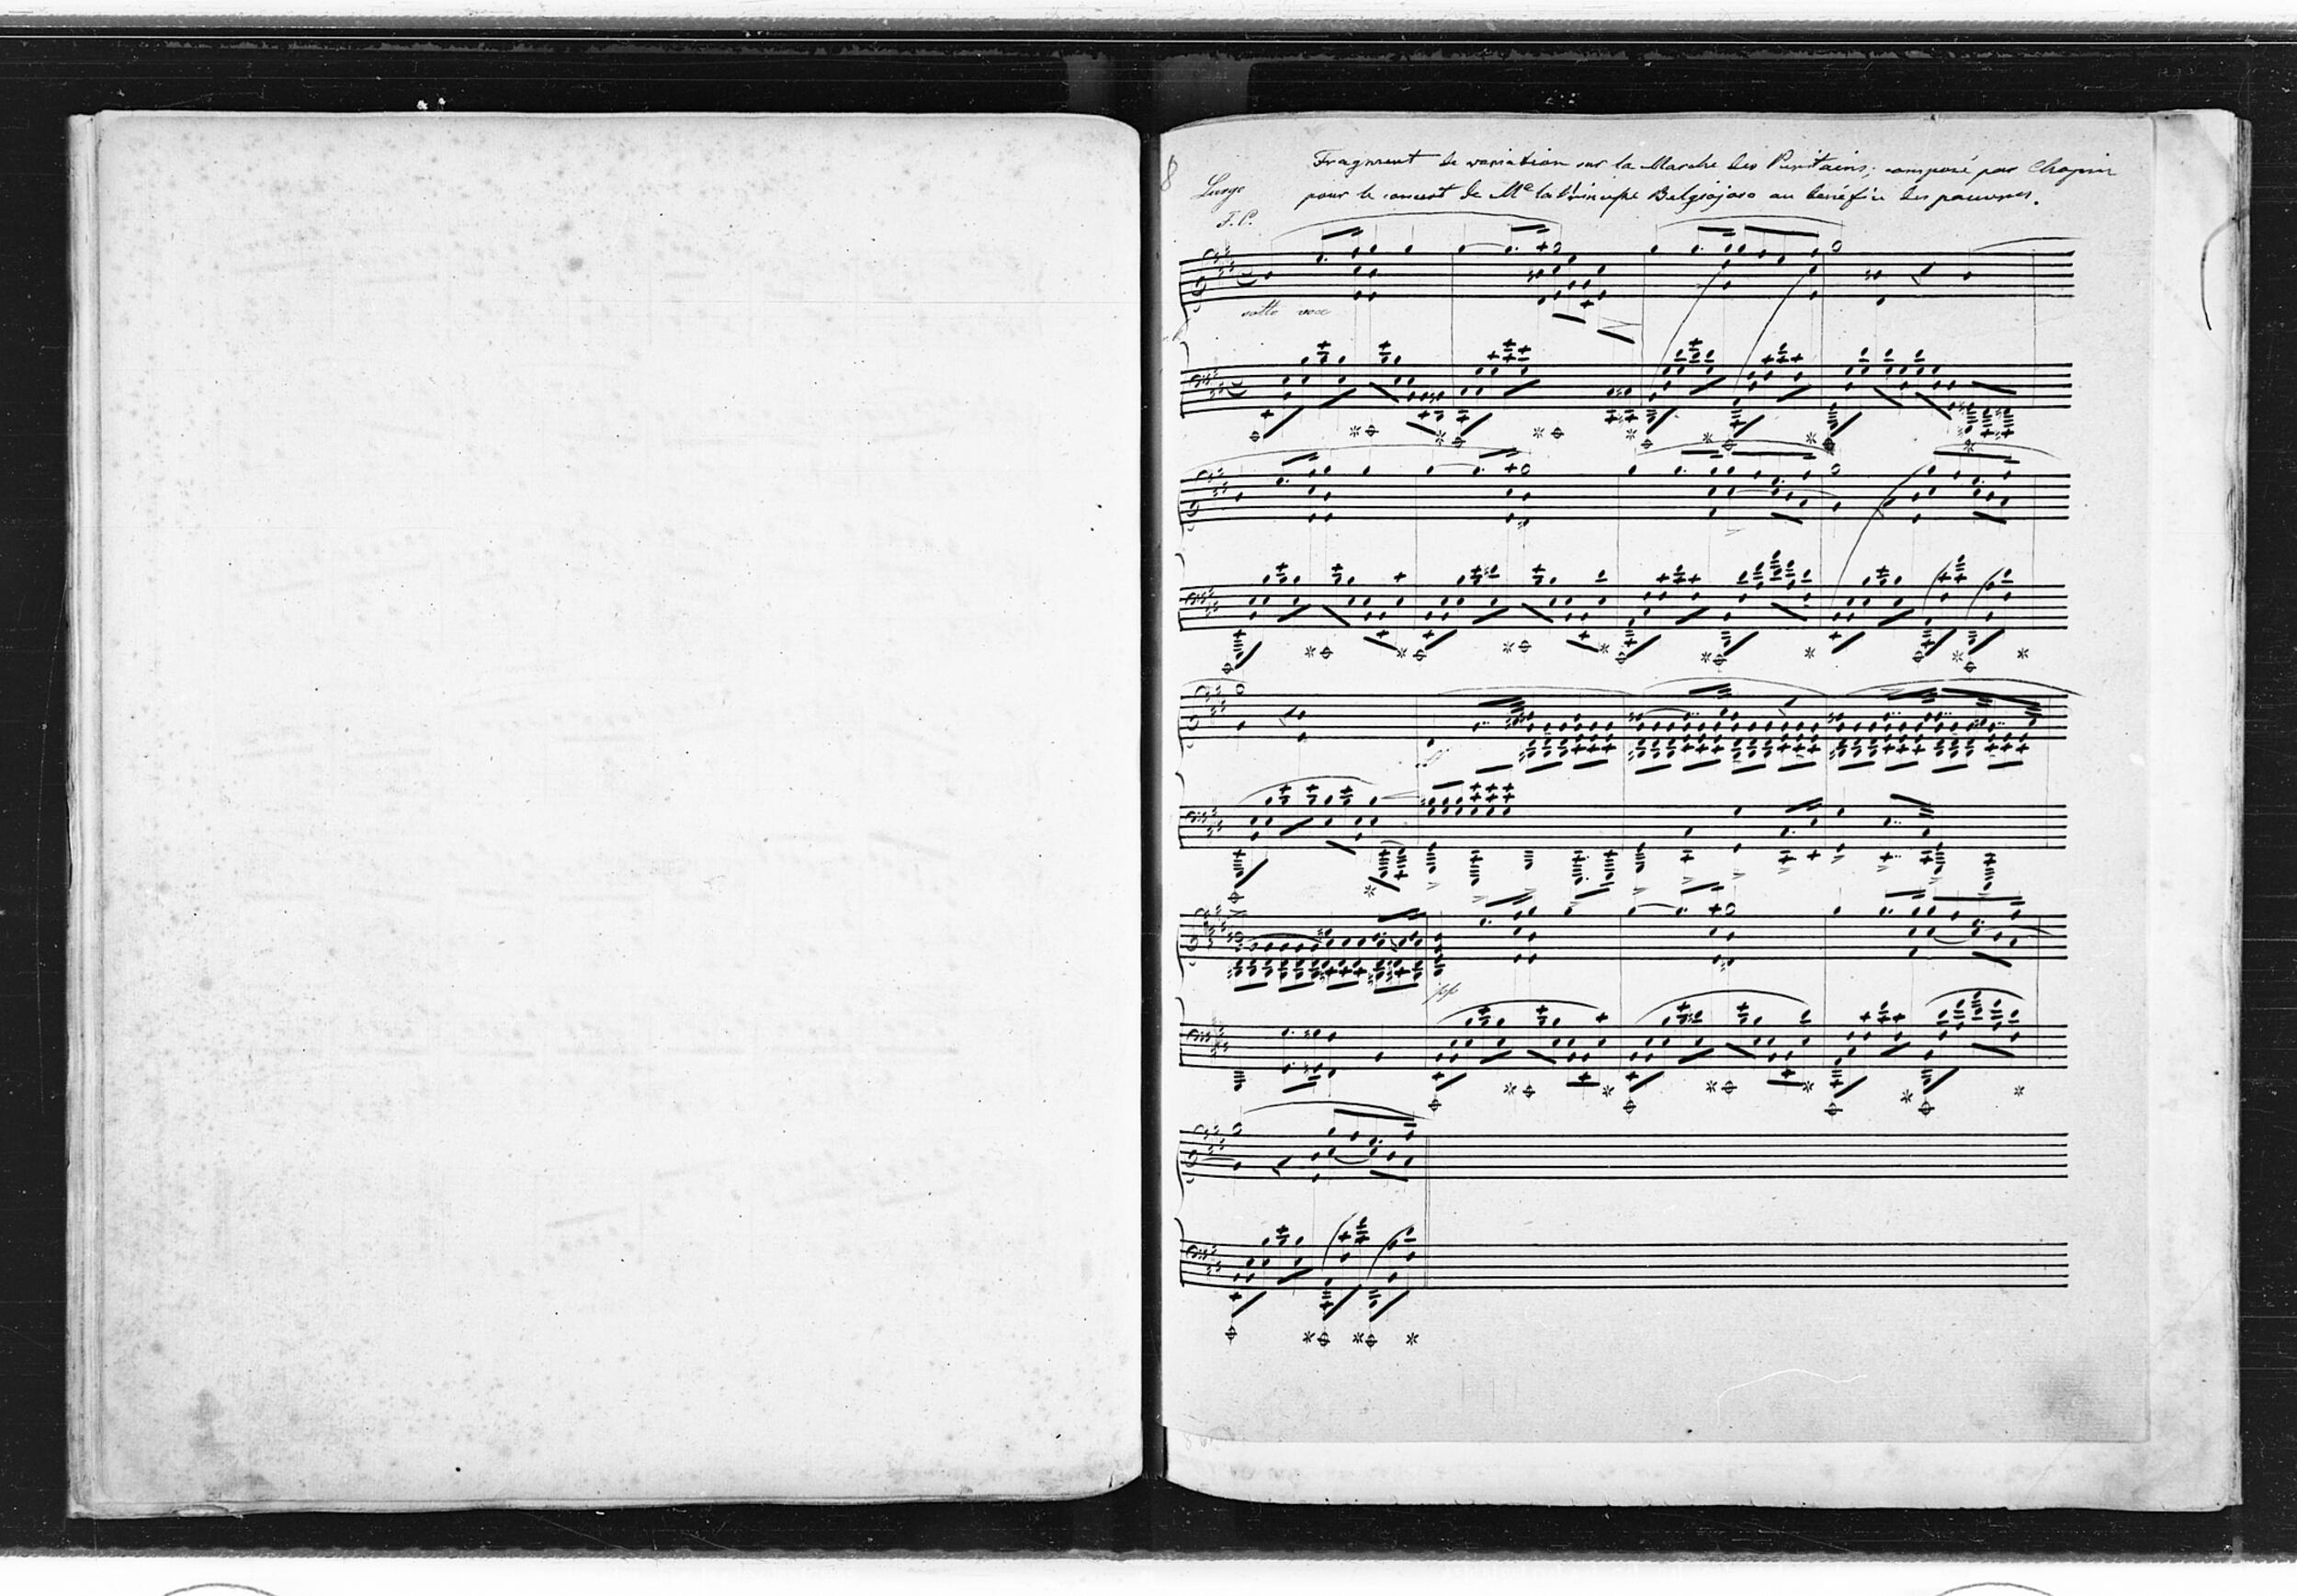 Fragment de variation sur la Marche des Puritains; composé par Chopin
Largo
pour le concert de Me la Princesse Belgiojoso au bénéfice des pauvres.
F. C.
8
sotto voce
pp